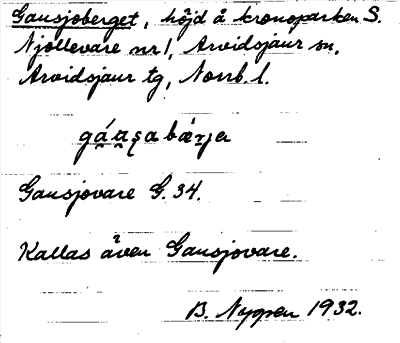 Gausjoberget, höjd å kronoparken S.
Njollevare nr 1, Arvidsjaur sn,
Arvidsjaur tg, Norrb. l.
Gausjovare G. 34.
Kallas även Gausjovare.
B. Nygren 1932.